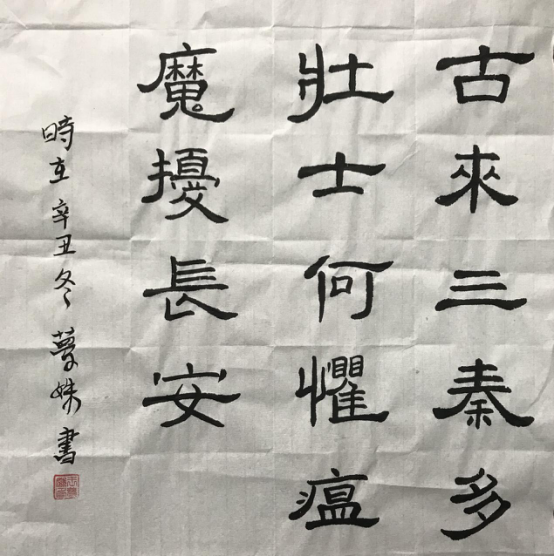 古來三秦多
壯士何懼瘟
魔擾長安
時在辛丑冬夢姝書